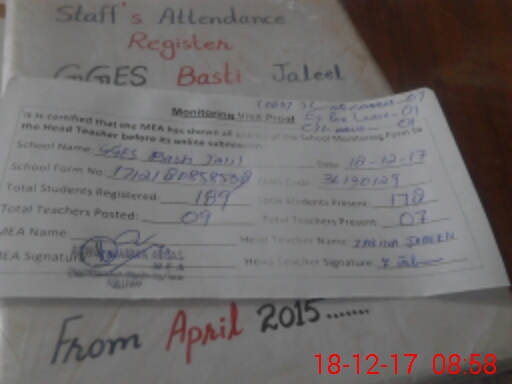 Staff's Attendance
Register
GGES Basti Jaleel
Monitoring Visit Proof
It is certified that the MEA has shown all of the School Monitoring Form to
the Head Teacher before its online submission
School Name: GGES Basti Jalil Date: 18-12-17
School Form No. EMIS Code: 36130129
Total Students Registered: 189 Total Students Present: 178
Total Teachers Posted: 09 Total Teachers Present: 07
MEA Name: Head Teacher Name: ZARINA JABEEN
MEA Signature Head Teacher Signature
From April 2015......
18-12-17 08:58